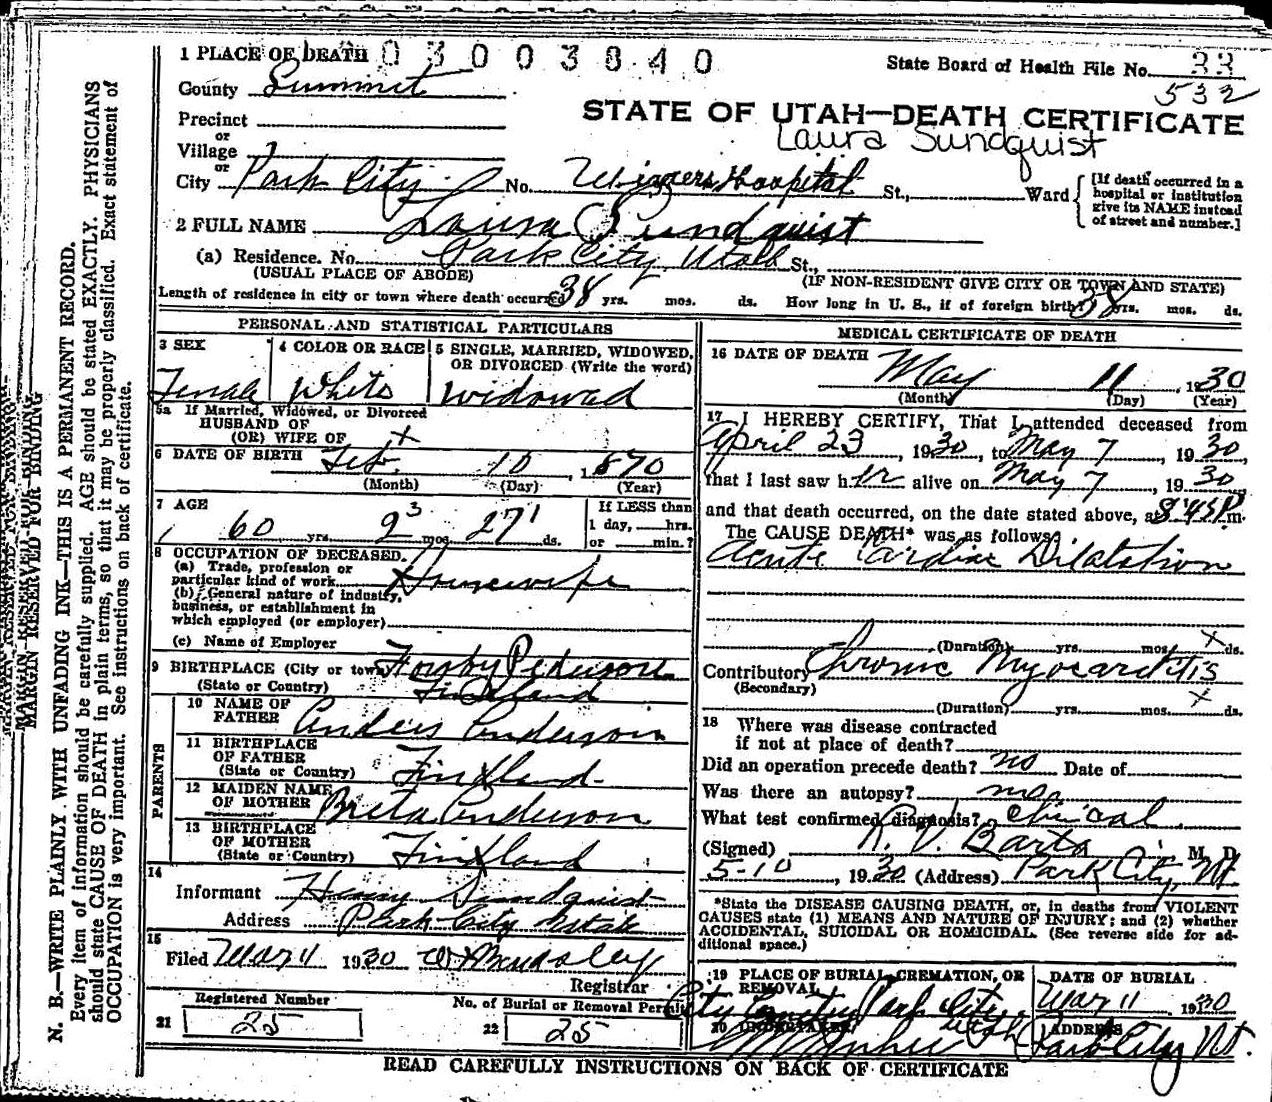 1 PLACE OF DEATH 03003840
State Board of Health File No. 33
County Summit
532
STATE OF UTAH—DEATH CERTIFICATE
Laura Sundquist
Precinct
or
Village
or
City Park City No. Hospital St., Ward [If death occurred in a hospital or institution give its NAME instead of street and number.]
2 FULL NAME Laura Sundquist
(a) Residence. No. Park City Utah St.,
(USUAL PLACE OF ABODE) (IF NON-RESIDENT GIVE CITY OR TOWN AND STATE)
Length of residence in city or town where death occurred 38 yrs. mos. ds. How long in U. S., if of foreign birth? 38 yrs. mos. ds.
PERSONAL AND STATISTICAL PARTICULARS
3 SEX 4 COLOR OR RACE 5 SINGLE, MARRIED, WIDOWED,
OR DIVORCED (Write the word)
Female White Widowed
5a If Married, Widowed, or Divorced
HUSBAND OF
(OR) WIFE OF x
6 DATE OF BIRTH Feb. 10, 1870
(Month) (Day) (Year)
7 AGE If LESS than
1 day, hrs.
60 yrs. 2 3 mos. 27 1 ds. or min.?
8 OCCUPATION OF DECEASED.
(a) Trade, profession or
particular kind of work Housewife
(b) General nature of industry,
business, or establishment in
which employed (or employer)
(c) Name of Employer
9 BIRTHPLACE (City or town)
(State or Country) Findland
PARENTS
10 NAME OF
FATHER Anders Anderson
11 BIRTHPLACE
OF FATHER
(State or Country) Findland
12 MAIDEN NAME
OF MOTHER Breta Anderson
13 BIRTHPLACE
OF MOTHER
(State or Country) Findland
14
Informant Henry Sundquist
Address Park City Utah
15
Filed May 11 1930
Registrar
Registered Number No. of Burial or Removal Permit
21 25 22 25
MEDICAL CERTIFICATE OF DEATH
16 DATE OF DEATH May 11, 1930
(Month) (Day) (Year)
17 I HEREBY CERTIFY, That I attended deceased from
April 23, 1930, to May 7, 1930,
that I last saw her alive on May 7, 1930
and that death occurred, on the date stated above, at 8:45 P m.
The CAUSE DEATH* was as follows:
Acute Cardiac Dilatation
(Duration) yrs. mos. x ds.
Contributory Chronic Myocarditis
(Secondary) x
(Duration) yrs. mos. ds.
18 Where was disease contracted
if not at place of death?
Did an operation precede death? no Date of
Was there an autopsy? no
What test confirmed diagnosis? Clinical
(Signed) R. V. Barta M. D.
5-10, 1930 (Address) Park City, Ut
*State the DISEASE CAUSING DEATH, or, in deaths from VIOLENT
CAUSES state (1) MEANS AND NATURE OF INJURY; and (2) whether
ACCIDENTAL, SUICIDAL OR HOMICIDAL. (See reverse side for ad-
ditional space.)
19 PLACE OF BURIAL, CREMATION, OR DATE OF BURIAL
REMOVAL
City Cemetery Park City, Utah May 11 1930
20 UNDERTAKER ADDRESS
Park City Ut.
READ CAREFULLY INSTRUCTIONS ON BACK OF CERTIFICATE
MARGIN RESERVED FOR BINDING
N. B.—WRITE PLAINLY WITH UNFADING INK—THIS IS A PERMANENT RECORD.
Every item of information should be carefully supplied. AGE should be stated EXACTLY. PHYSICIANS
should state CAUSE OF DEATH in plain terms, so that it may be properly classified. Exact statement of
OCCUPATION is very important. See instructions on back of certificate.